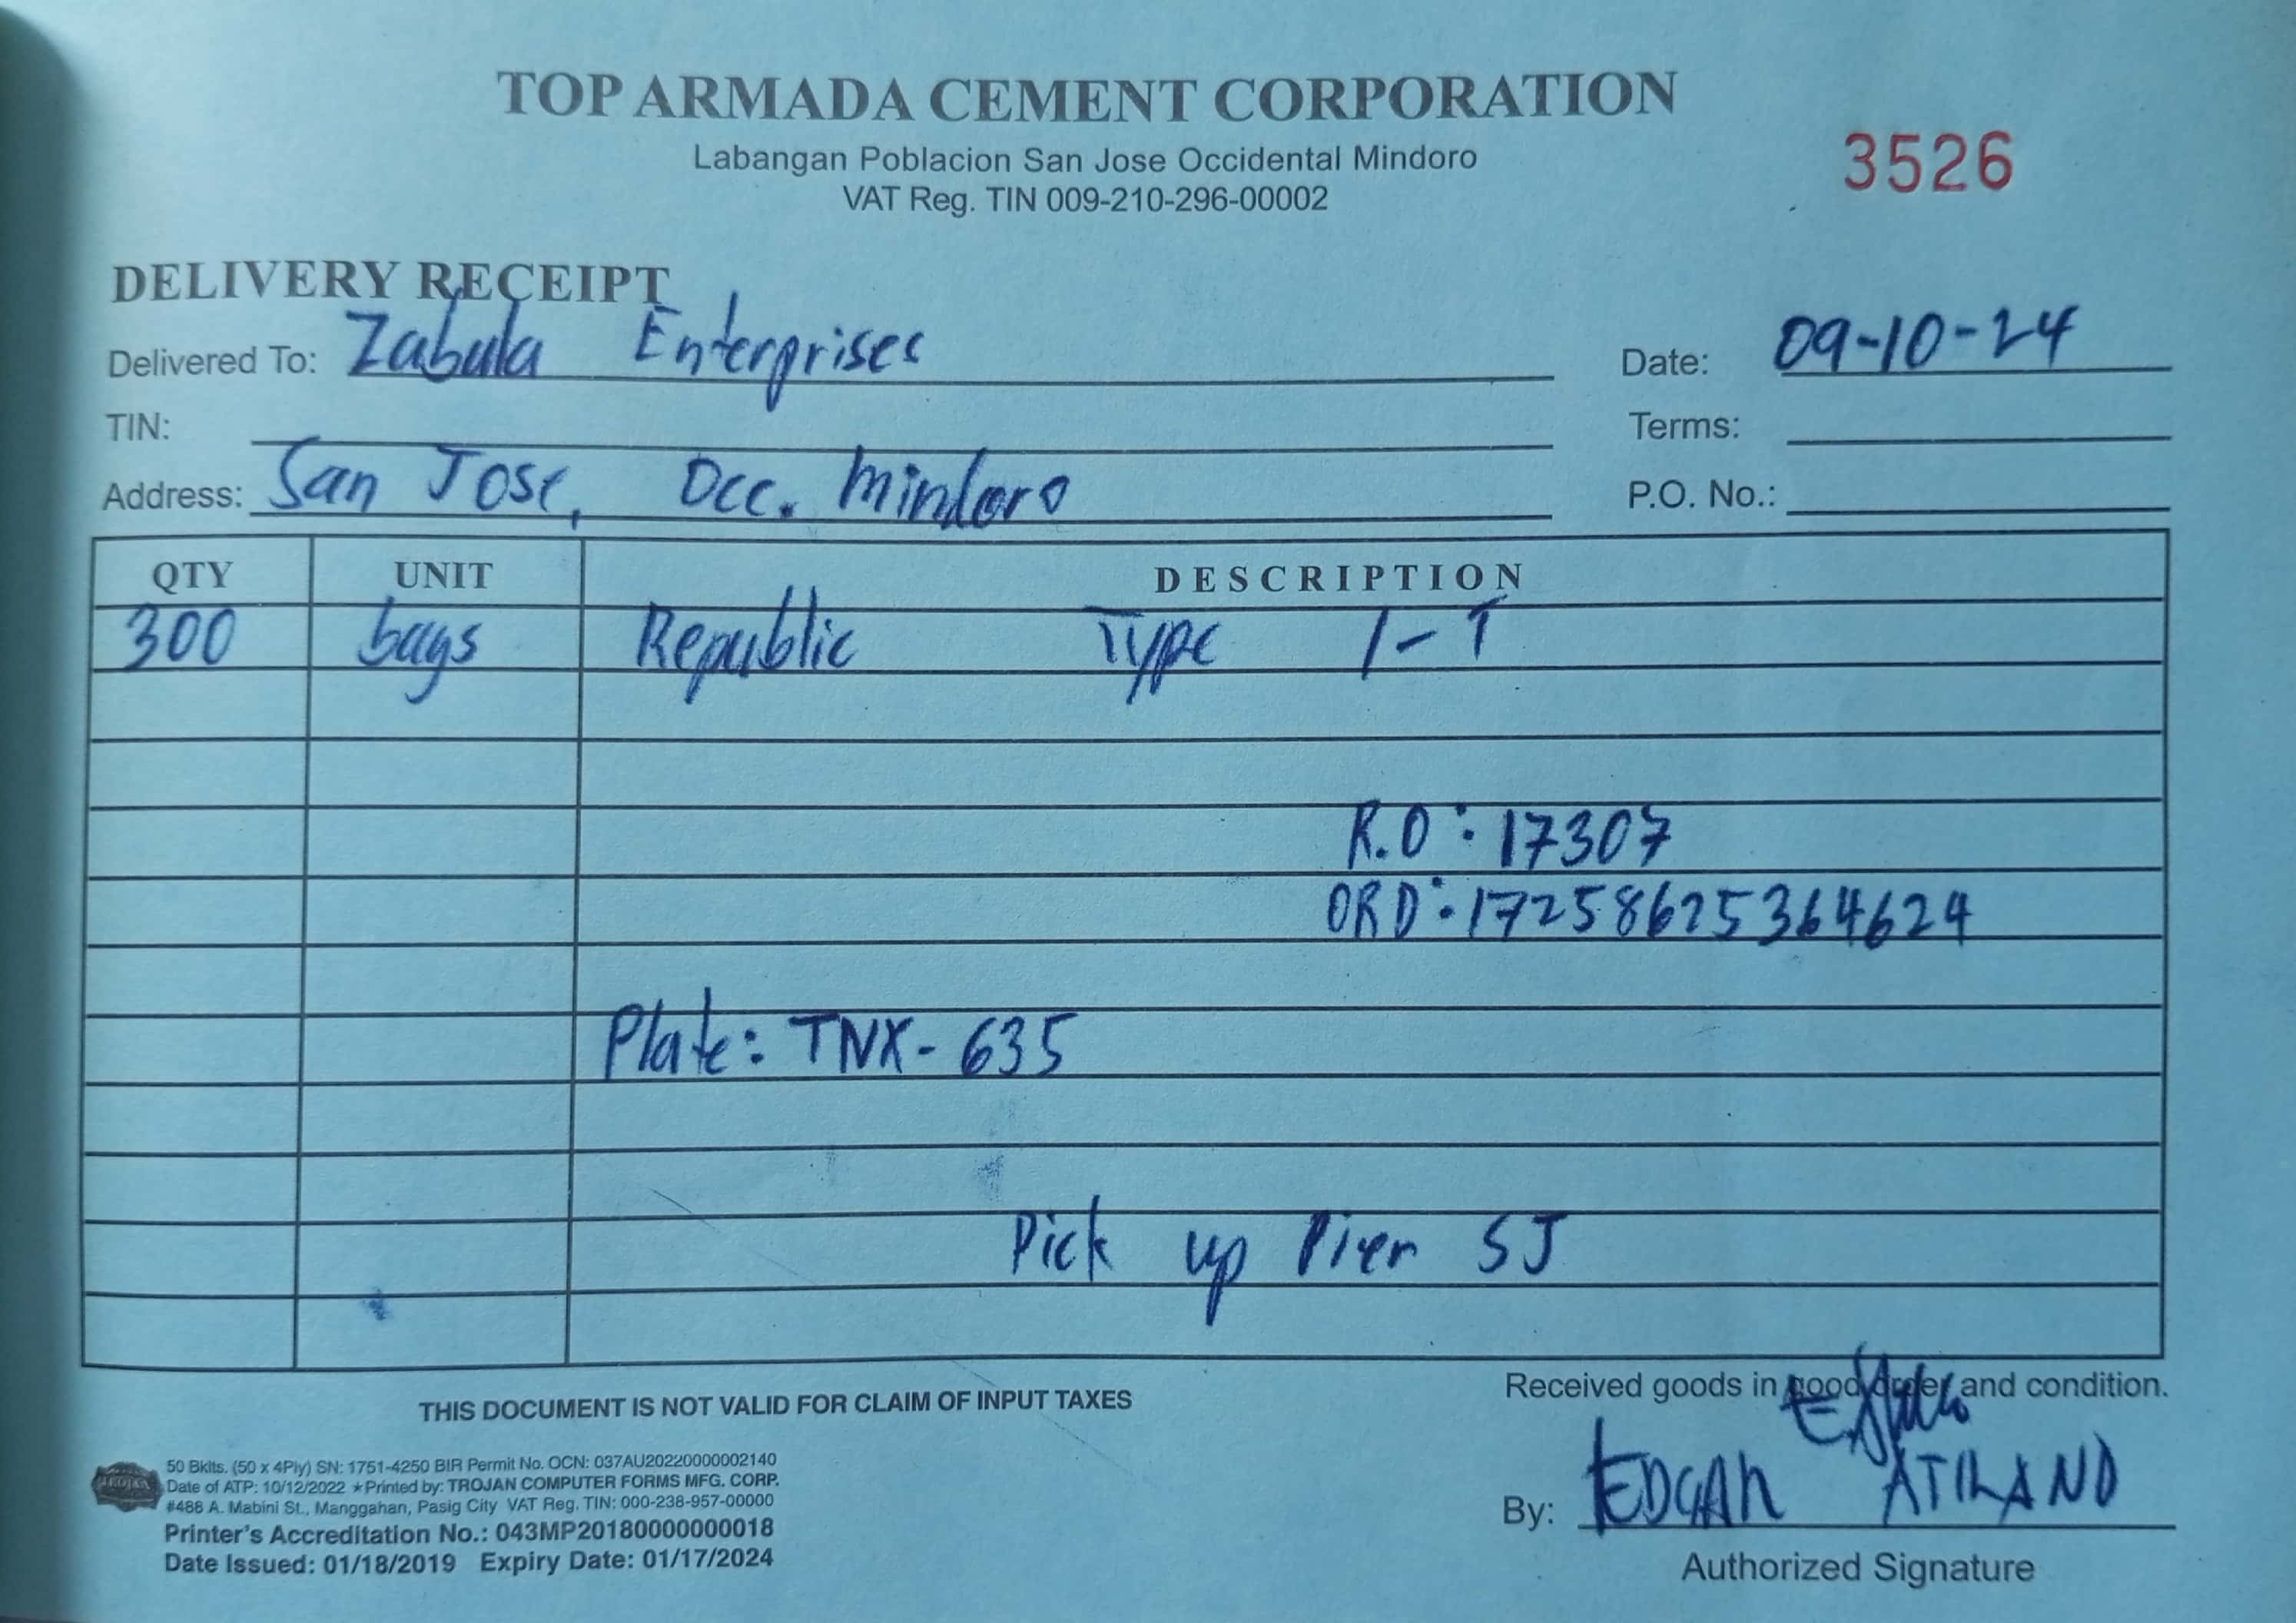 TOP ARMADA CEMENT CORPORATION
Labangan Poblacion San Jose Occidental Mindoro
VAT Reg. TIN 009-210-296-00002
3526
DELIVERY RECEIPT
Delivered To: Zabula Enterprises
Date: 09-10-24
TIN:
Terms:
Address: San Jose, Occ. Mindoro
P.O. No.:
QTY UNIT DESCRIPTION
300 bags Republic Type 1-T
R.O: 17307
ORD: 17258625364624
Plate: TNX-635
Pick up Pier SJ
THIS DOCUMENT IS NOT VALID FOR CLAIM OF INPUT TAXES
Received goods in good order and condition.
By: EDGAR ATILANO
Authorized Signature
TROJAN
50 Bklts. (50 x 4Ply) SN: 1751-4250 BIR Permit No. OCN: 037AU20220000002140
Date of ATP: 10/12/2022 ★Printed by: TROJAN COMPUTER FORMS MFG. CORP.
#488 A. Mabini St., Manggahan, Pasig City VAT Reg. TIN: 000-238-957-00000
Printer's Accreditation No.: 043MP20180000000018
Date Issued: 01/18/2019 Expiry Date: 01/17/2024